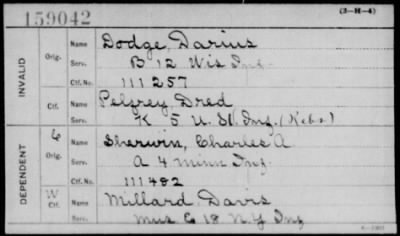 159042
(3-H-4)
INVALID
Orig.
Name Dodge, Darius
Serv. B 12 Wis Inf.
Ctf. No. 111257
Ctf.
Name Pelfrey Dred
Serv. K 5 U.S. Inf. (Rebs.)
DEPENDENT
C
Orig.
Name Sherwin, Charles A
Serv. A 4 Minn Inf.
Ctf. No. 111482
W
Ctf.
Name Millard Davis
Serv. Mus E 18 N.Y Inf